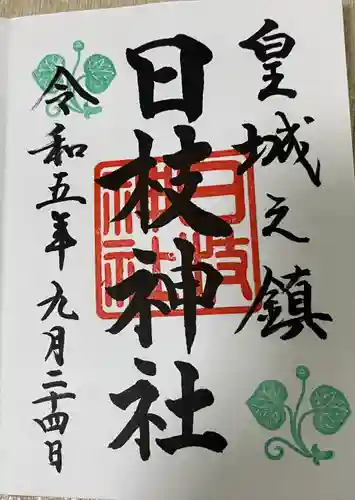 皇城之鎮
日枝神社
日枝神社
令和五年九月二十四日